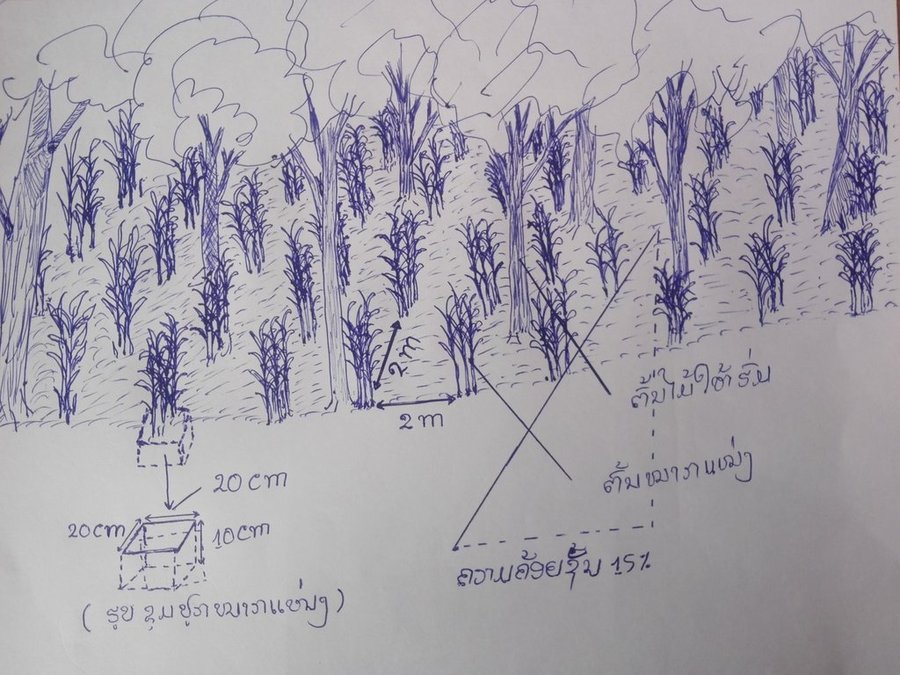 2 m
2 m
ຕົ້ນໄມ້ໃຫ້ຮົ່ມ
20 cm
ຕົ້ນໝາກແໜ່ງ
20cm
10cm
ຄວາມຄ້ອຍຊັນ 15%
( ຮູບ ຂຸມປູກໝາກແໜ່ງ )